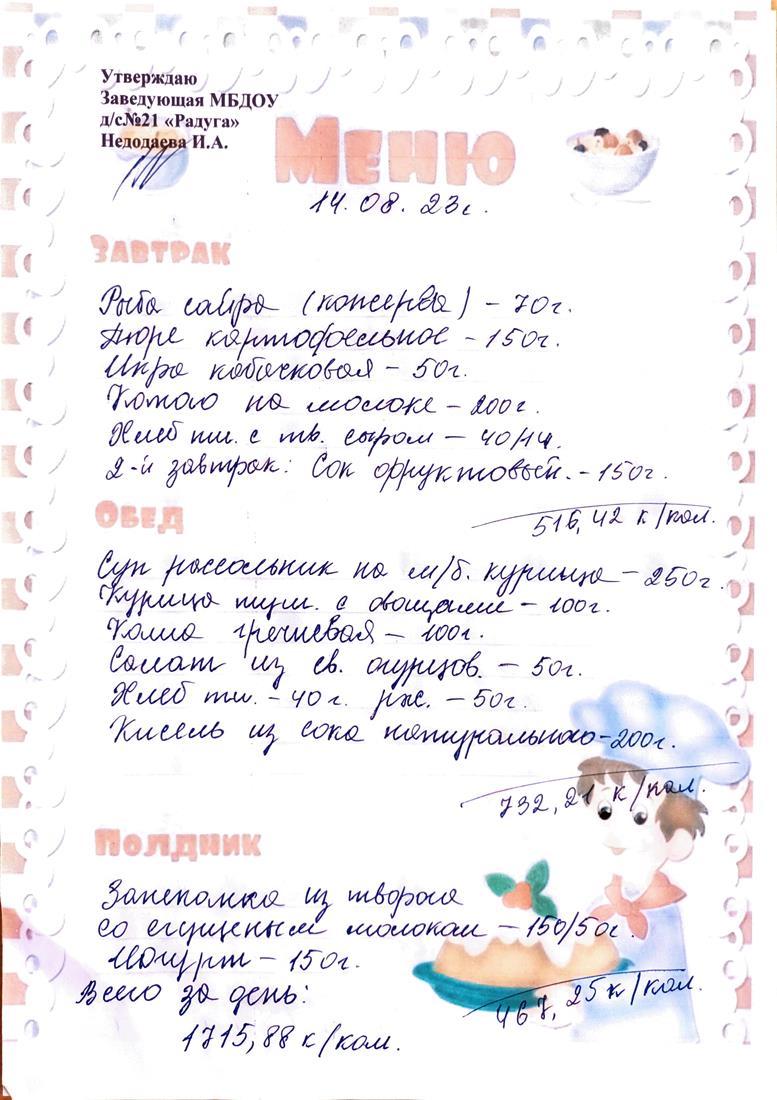 Утверждаю
Заведующая МБДОУ
д/с№21 «Радуга»
Недодаева И.А.
Меню
14.08.23г.
Завтрак
Рыба сайра (консерва) – 70г.
Пюре картофельное – 150г.
Икра кабачковая – 50г.
Какао на молоке – 200г.
Хлеб пш. с тв. сыром – 40/14.
2-й завтрак: Сок фруктовый. – 150г.
516,42 к/кал.
Обед
Суп рассольник на м/б. курица – 250г.
Курица туш. с овощами – 100г.
Каша гречневая – 100г.
Салат из св. огурцов. – 50г.
Хлеб пш. – 40г. рж. – 50г.
Кисель из сока натурального – 200г.
732,21 к/кал.
Полдник
Запеканка из творога
со сгущеным молоком – 150/50г.
Йогурт – 150г.
467,25 к/кал.
Всего за день:
1715,88 к/кал.